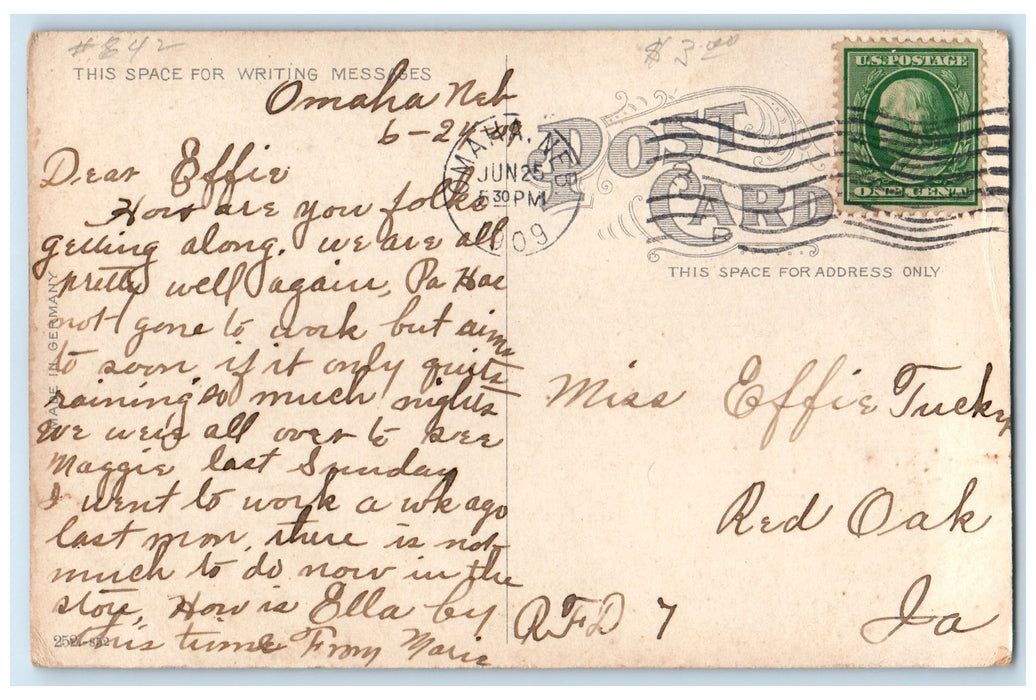 # 842
$ 3.00
THIS SPACE FOR WRITING MESSAGES
Omaha Neb
6-24-09
Dear Effie
How are you folks
getting along. we are all
pretty well again, Pa Has
not gone to work but aims
to soon if it only quits
raining so much nights
We were all over to see
Maggie last Sunday
I went to work a wk ago
last mon, there is not
much to do now in the
store, How is Ella by
this time From Marie
MADE IN GERMANY
OMAHA, NEB
JUN 25
5 30 PM
1909
POST CARD
U.S. POSTAGE
ONE CENT
THIS SPACE FOR ADDRESS ONLY
Miss Effie Tucker
Red Oak
RFD 7 Ia